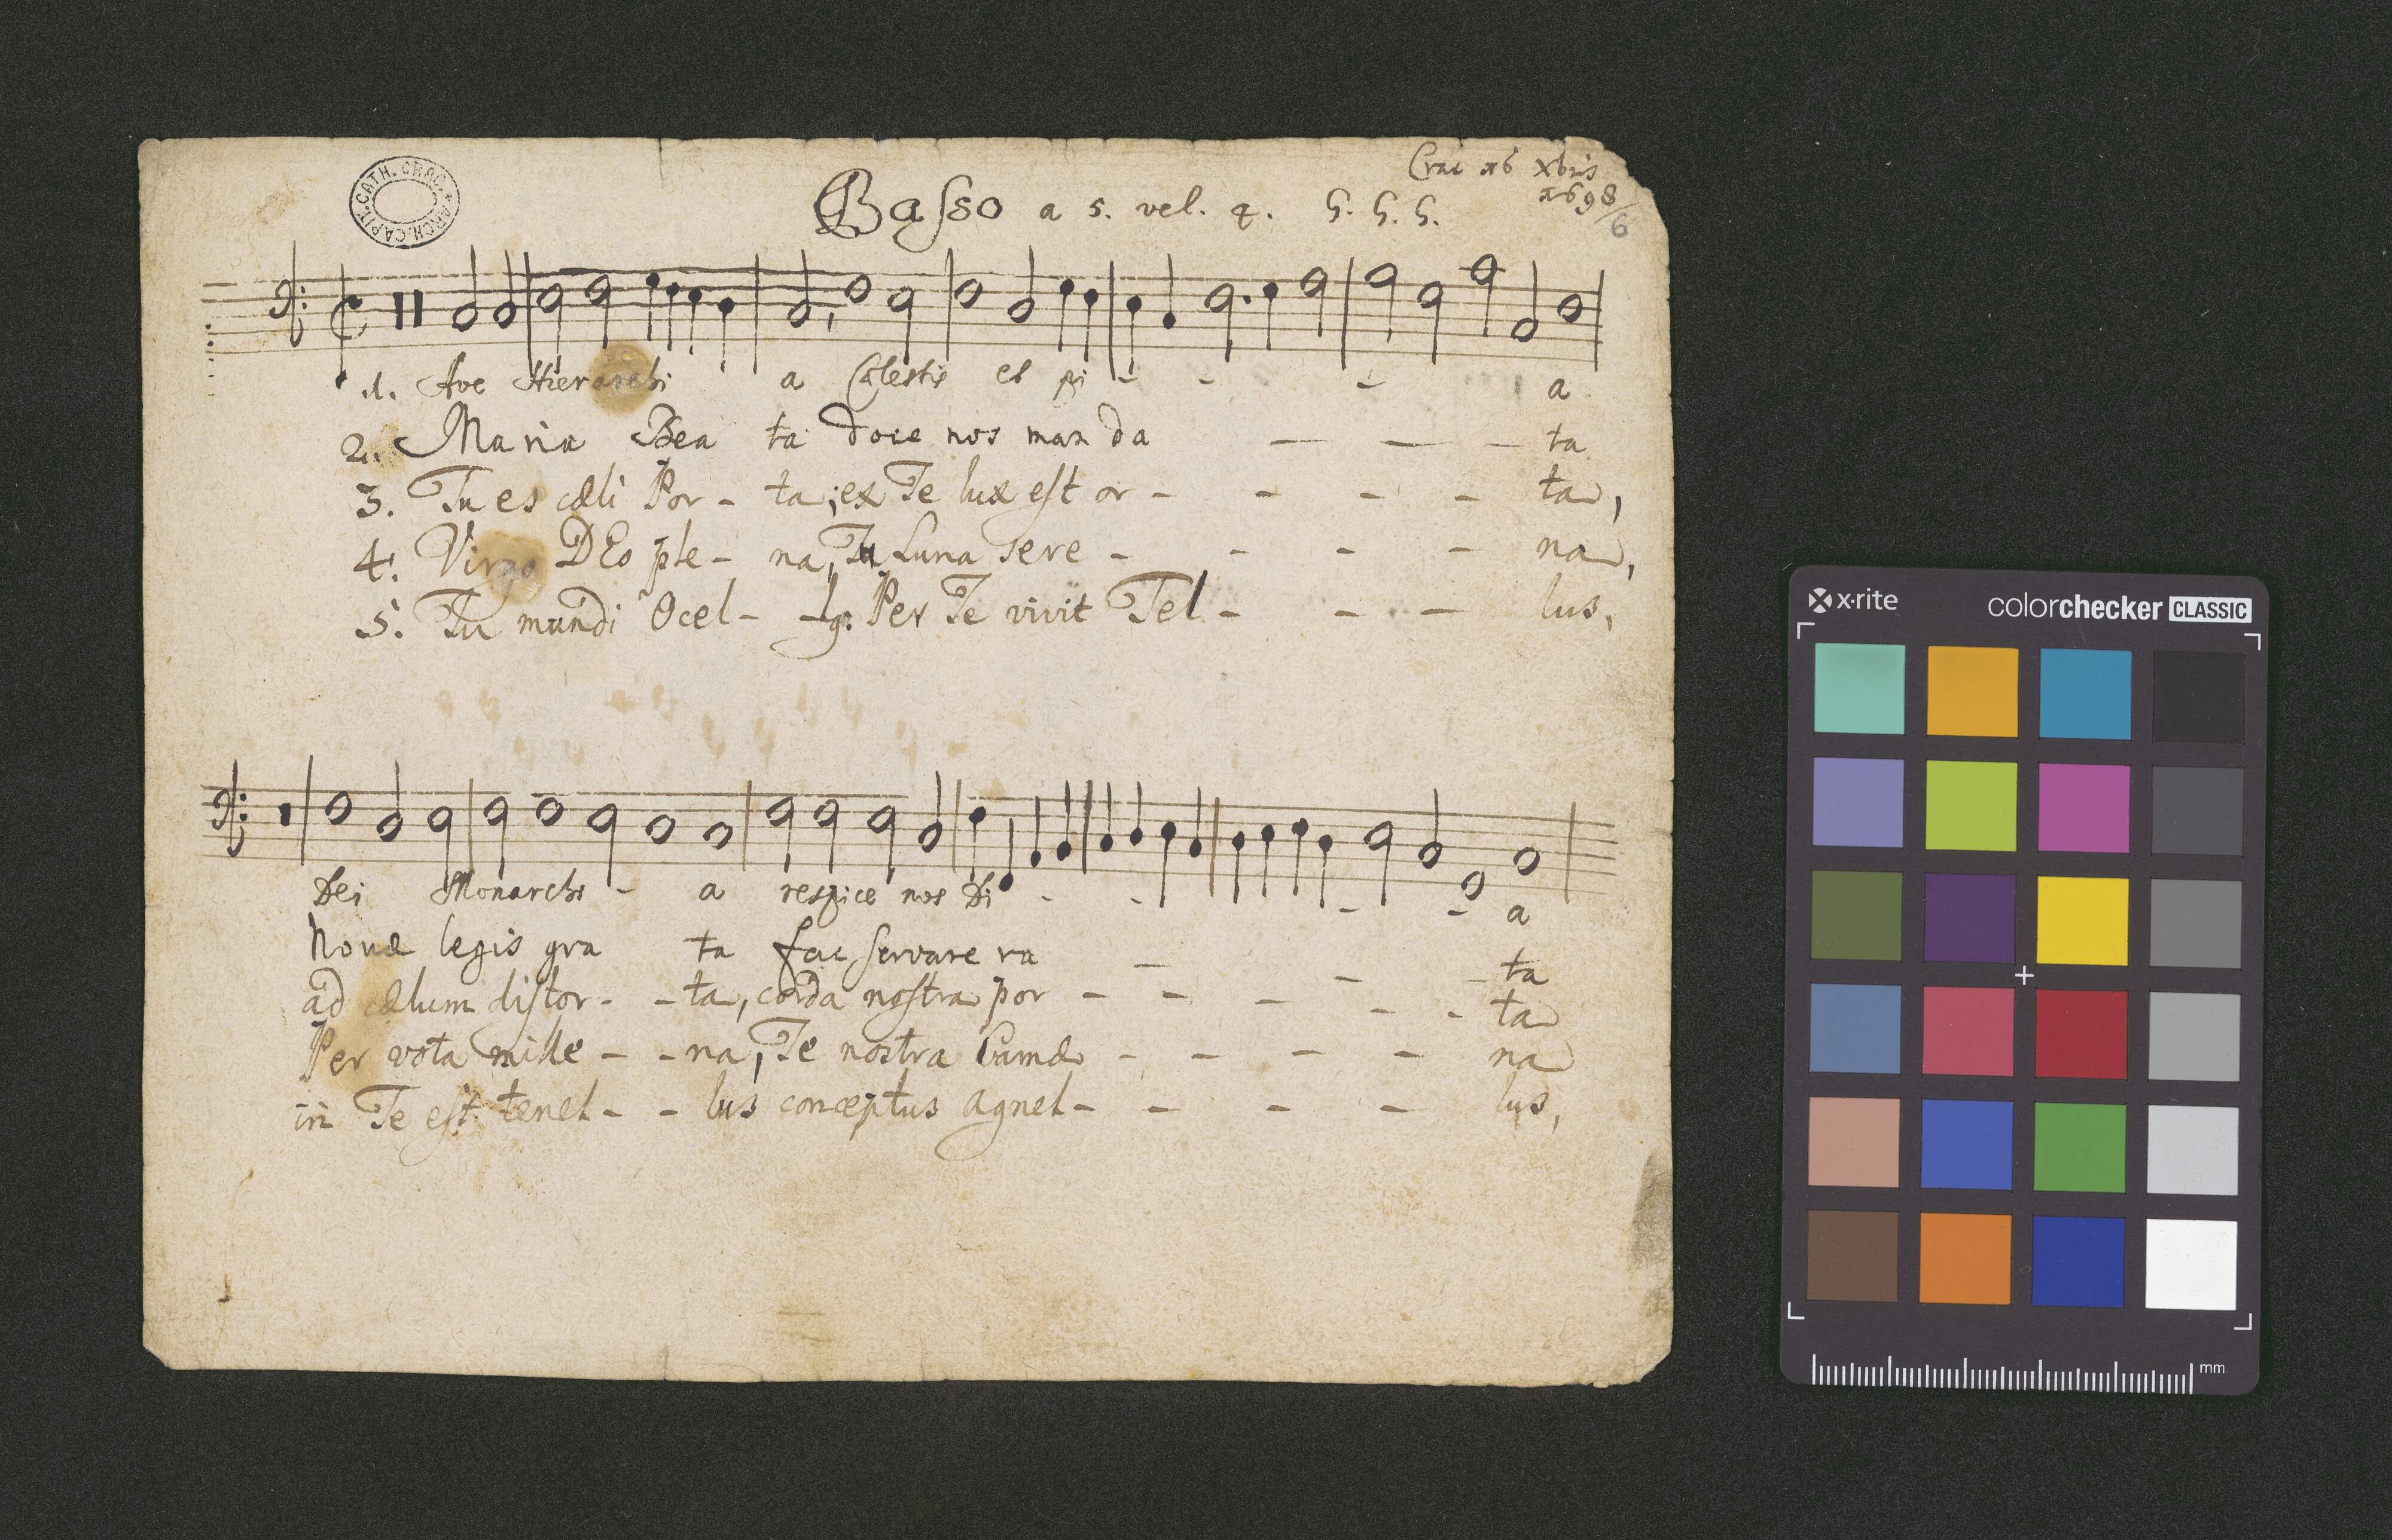 ARCH. CAPIT. CATH. CRAC.
Crac 16 Xbris
1698
6
Basso a 5. vel. 4. G. G. G.
1. Ave Hierarchi a Cælestis et pi - - - a
2. Maria Bea ta doce nos man da - - - ta
3. Tu es cæli Por - ta; ex Te lux est or - - - - ta,
4. Virgo DEo ple - na, Tu Luna sere - - - - na,
5. Tu mundi Ocel - - lq: Per Te vivit Tel - - - lus,
Dei Monarchi - a respice nos Di - - - - a
Novæ legis gra ta fac servare ra - - - ta
ad cælum distor - - ta, corda nostra por - - - - - ta
Per vota mille - - na, Te nostra Camæ - - - - na
in Te est tenel - - lus conceptus Agnel - - - - lus,
x·rite
colorchecker CLASSIC
mm